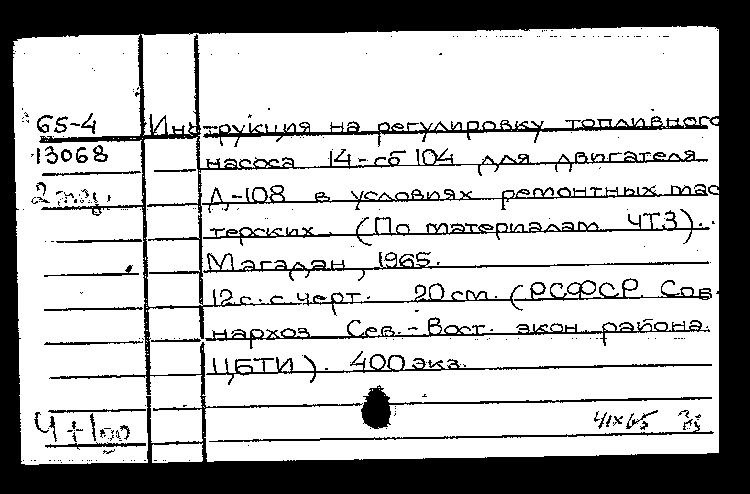 65-4 Инструкция на регулировку топливного
13068 насоса 14-сб 104 для двигателя
2 экз. Д-108 в условиях ремонтных мас
терских. (По материалам ЧТЗ).
Магадан, 1965.
12 с. с черт. 20 см. (РСФСР. Сов-
нархоз Сев.-Вост. экон. района.
ЦБТИ). 400 экз.
Ч+1
41х65